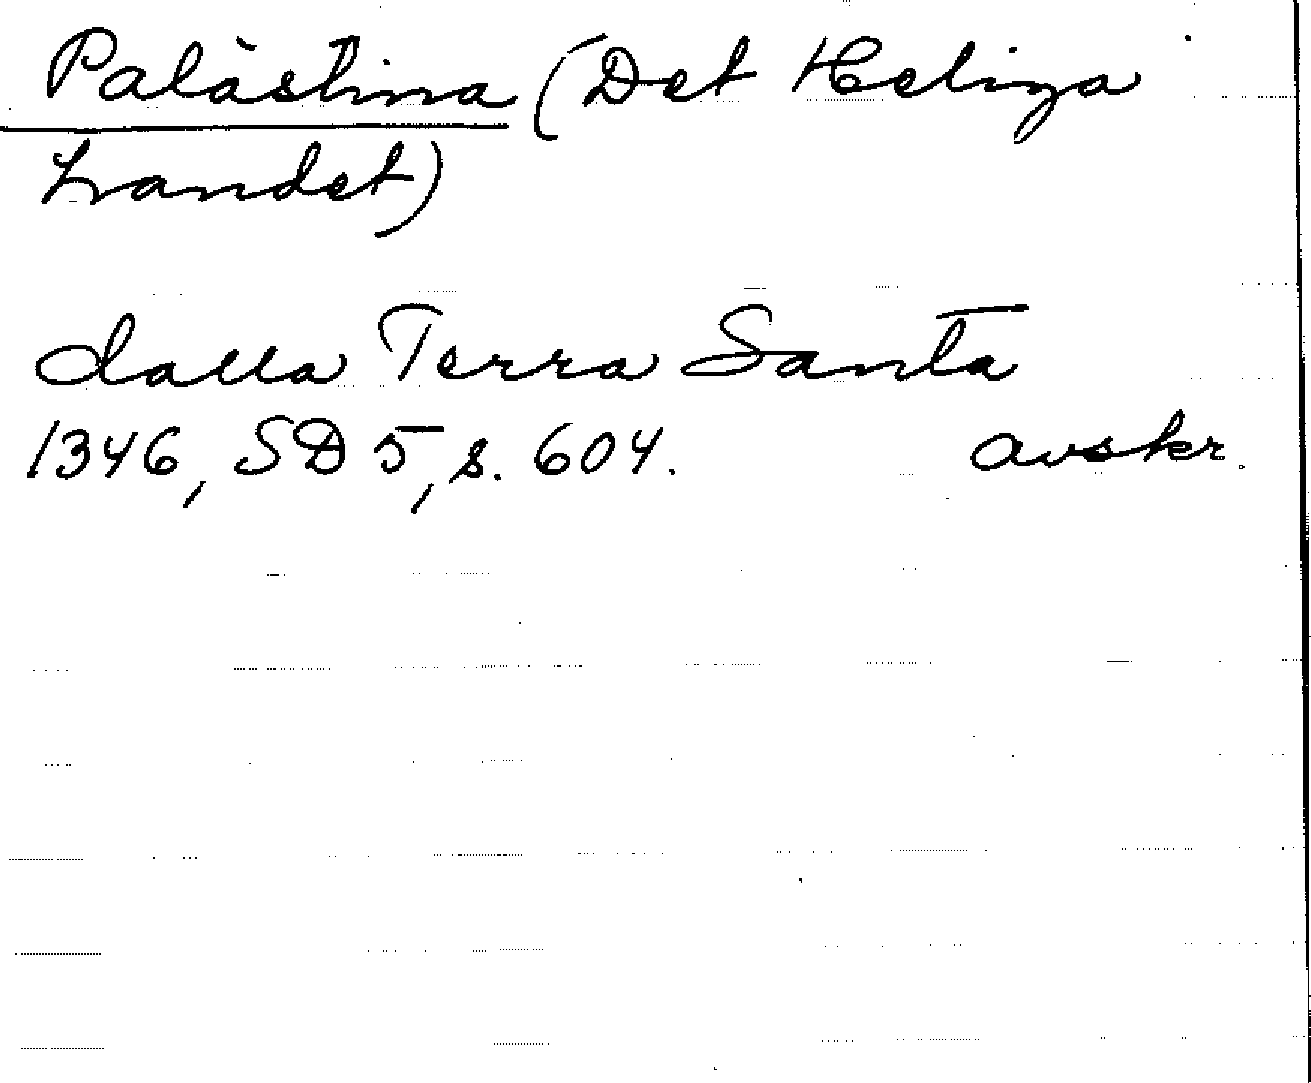 Palästina (Det Heliga
Landet)
dalla Terra Santa
1346, SD 5, s. 604. avskr.